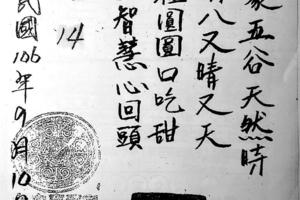 家五谷天然時
八又晴又天
圓圓口吃甜
智慧心回頭
14
民國106年9月10日